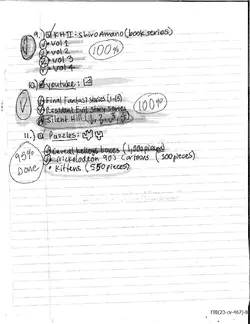 9.) KHII: Shiro Amano (book series)
vol 1
vol 2
vol 3
vol 4
100%
10.) youtube:
Final Fantasy stories (1-15)
Resident Evil story series
Silent Hill 1, 2, 3,
100%
11.) Puzzles:
Cereal kelloggs boxes (1,000 pieces)
Nickelodeon 90s Cartoons (500 pieces)
• Kittens (550 pieces)
95% DONE